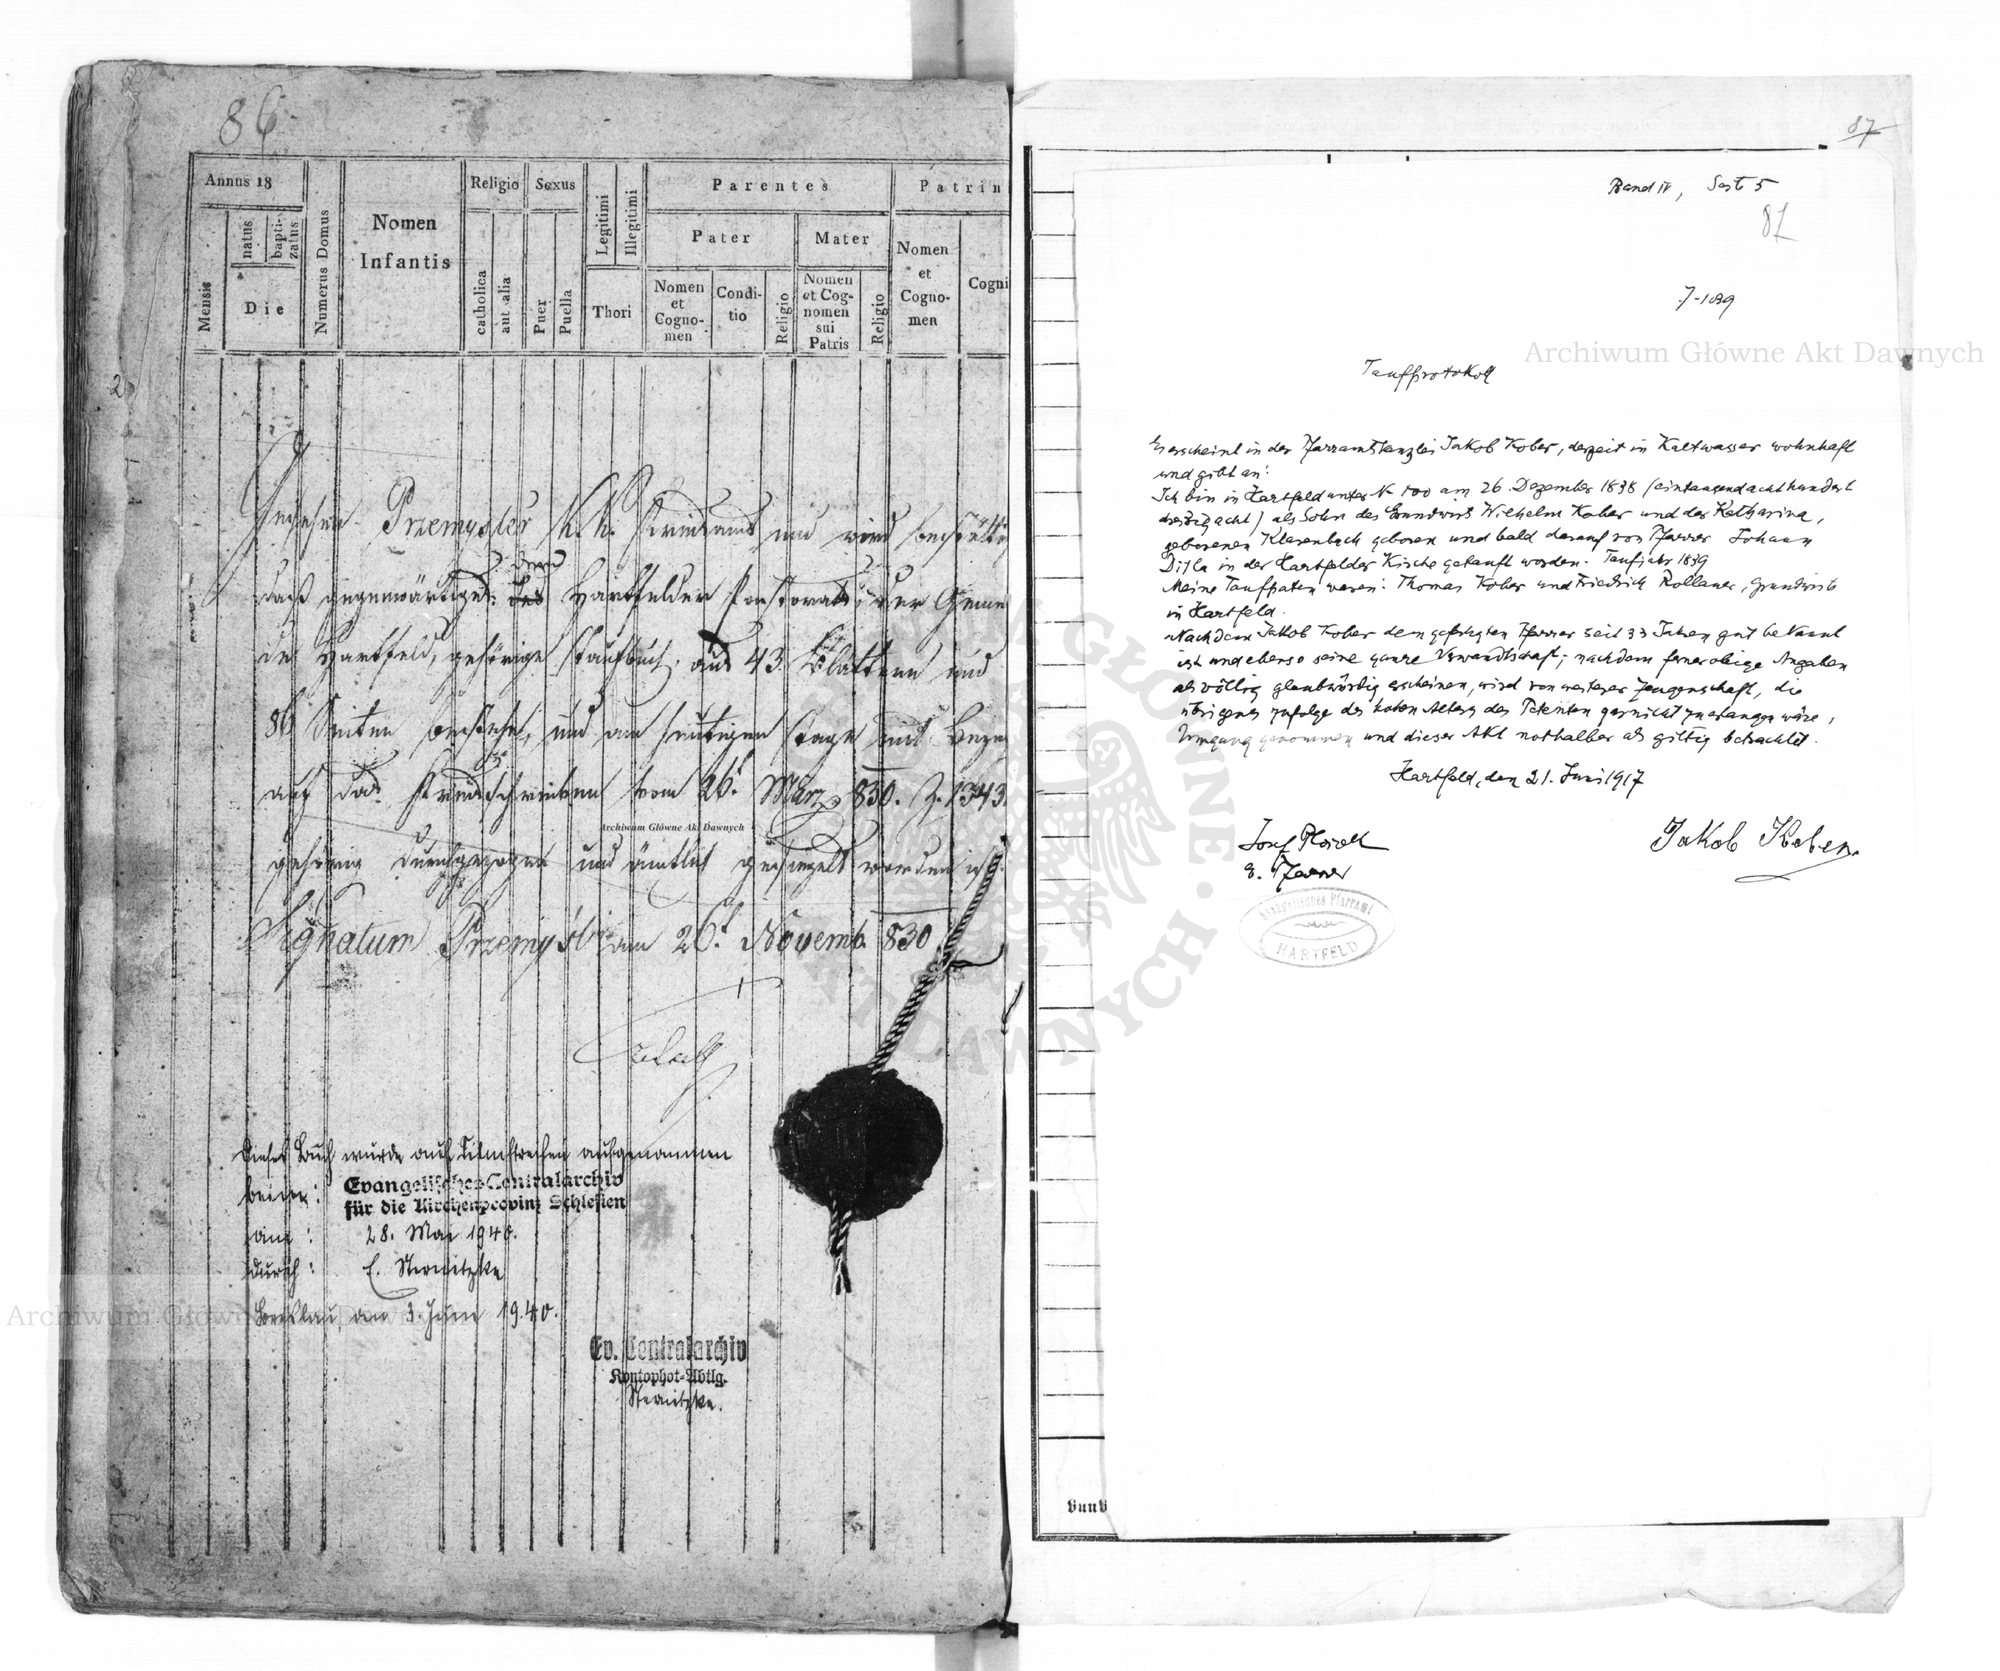 86
Annus 18
Mensis
natus
bapti-
zatus
Die
Numerus Domus
Nomen
Infantis
Religio
catholica
aut alia
Sexus
Puer
Puella
Legitimi
Illegitimi
Thori
Parentes
Pater
Nomen
et
Cogno-
men
Condi-
tio
Religio
Mater
Nomen
et Cog-
nomen
sui
Patris
Religio
Patrin
Nomen
et
Cogno-
men
Cogni
Przemysler K. K. Kreisamt und wird bestätti
daß gegenwärtiges dem Hartfelder Pastorate der Gemein
de Hartfeld, gehörige Taufbuch aus 43 Blättern und
86 Seiten bestehe, und am heutigen Tage mit Bezug
auf das Kreisschreiben vom 26t März 830. Z. 1343
gehörig durchgezogen und ämtlich gesiegelt worden ist.
Signatum Przemysl am 26t Novemb. 830
Dieses Buch wurde auf Filmstreifen aufgenommen
beim: Evangelisches Centralarchiv
für die Kirchenprovinz Schlesien
am: 28. Mai 1940.
durch: E. Sternitzke
Breslau, am 3. Juni 1940.
Ev. Centralarchiv
Kontophot-Abtlg.
Sternitzke.
87
Band IV, Seite 5
87
7-1839
Taufprotokoll
Es erscheint in der Pfarramtskanzlei Jakob Kober, derzeit in Kaltwasser wohnhaft
und gibt an:
Ich bin in Hartfeld unter N- 100 am 26. Dezember 1838 (eintausendachthundert
dreißigacht) als Sohn des Grundwirts Wilhelm Kober und der Katharina,
geborenen Klasenbach geboren und bald darauf von Pfarrer Johann
in der Hartfelder Kirche getauft worden. Taufjahr 1839
Meine Taufpaten waren: Thomas Kober und Friedrich Rollauer, Grundwirte
in Hartfeld.
Nachdem Jakob Kober dem gefertigten Pfarrer seit 33 Jahren gut bekannt
ist und ebenso seine ganze Verwandtschaft; nachdem ferner obige Angaben
als völlig glaubwürdig erscheinen, wird von weiterer Zeugenschaft, die
übrigens zufolge des hohen Alters des Petenten garnicht zu erlangen wäre,
Umgang genommen und dieser Akt nothalber als giltig betrachtet.
Hartfeld, den 21. Juni 1917
Josef
e. Pfarrer
Jakob Kober.
Evangelisches Pfarramt
HARTFELD
Archiwum Główne Akt Dawnych
Archiwum Główne Akt Dawnych
Archiwum Główne Akt Dawnych